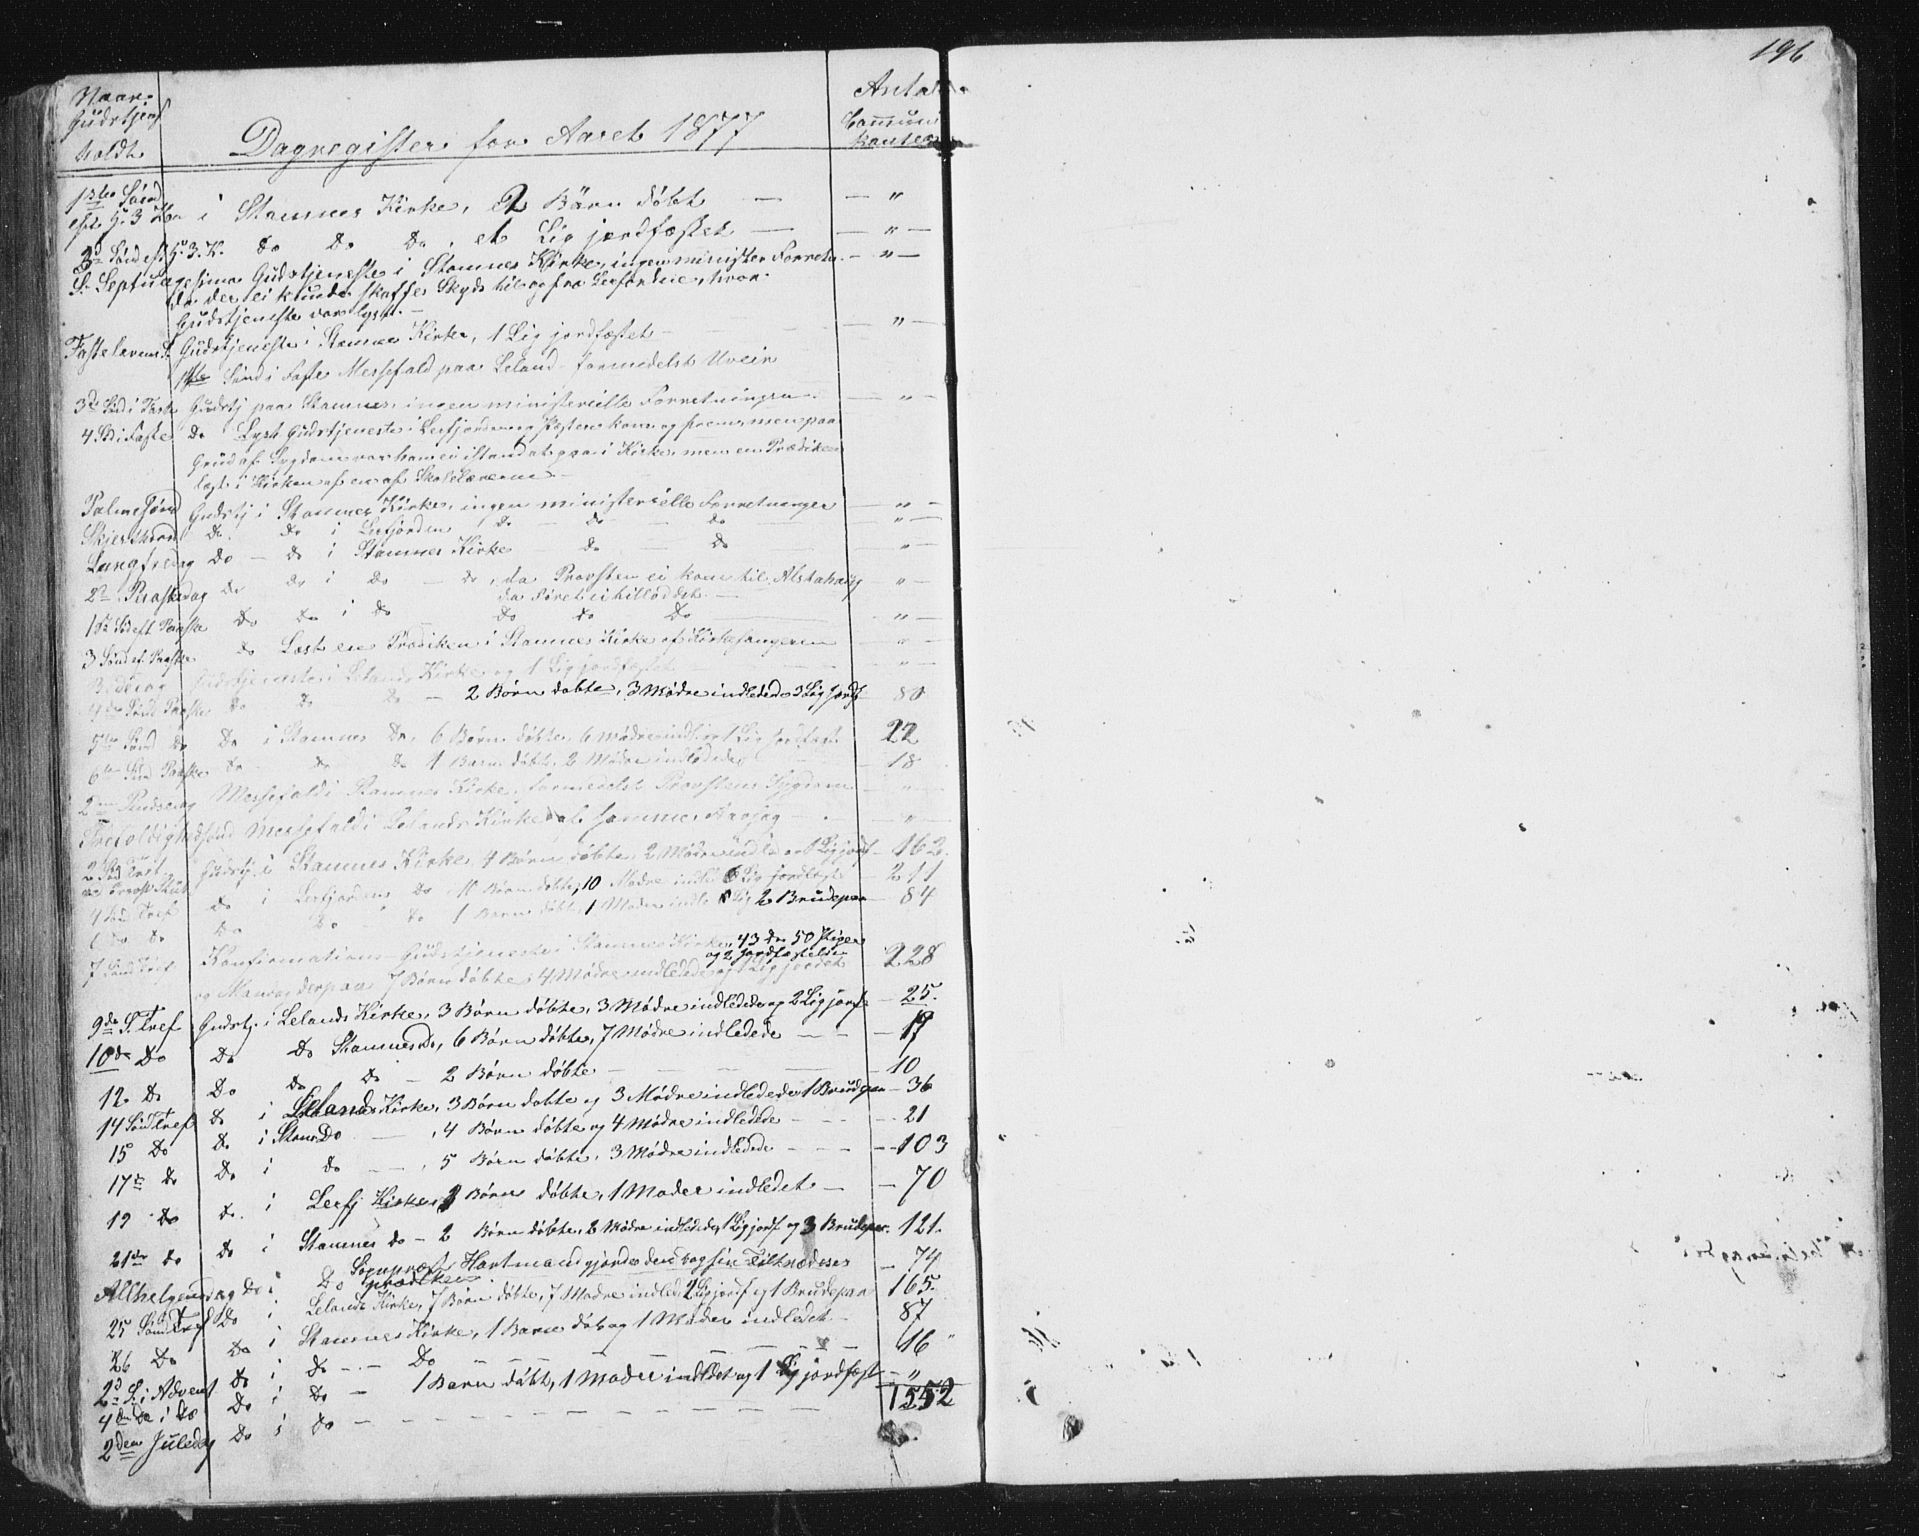 196
Naar Gudstjen holdt
Dagregister for Aaret 1877
Antal Communikanter
1ste Sønd eft. H. 3 Kon i Stamnes Kirke, 2 Børn døbt — "
3d Sønd eft H. 3. K. Do Do Do, et Lig jordfæstet — "
S. Septuagesima Gudstjeneste i Stamnes Kirke, ingen minister Forretn. — "
da der ei kunde skaffes Skyds til og fra Leerfjorden, hvor
Gudstjeneste var lyst. —
Fastelavns S. Gudstjeneste i Stamnes Kirke, 1 Lig jordfæstet — "
1ste Sønd i Faste Messefald paa Leland formedelst Uveir
3de Sød i Faste Gudstj paa Stamnes, ingen ministerielle Forretninger. — "
4 S i Faste Do Lyst Gudstjeneste i Leerfjorden og Præsten kom og frem, men paa
Grund af Sygdom var han ei istand at gaa i Kirke, men en Prædiken
læst i Kirken af en af Skolelærerne —
Palmesønd Gudstj i Stamnes Kirke, ingen ministerielle Forretninger — "
Skjerthord Do. Do i Leefjorden Do — Do Do "
Langfredag Do — Do i Stamnes Kirke — Do — Do "
2n Paaskedag Do Do i Do — Do, da Provsten ei kom til Alstahaug "
da Føret ei tillod det. —
1ste Sød eft Paaske Do Do i Do Do Do Do "
3 Sønd ef. Paaske Do Læst en Prædiken i Stamnes Kirke af Kirkesangeren "
Bededag Gudstjeneste i Lelands Kirke og 1 Lig jordfæstet "
4de Sønd Paaske Do Do Do — 2 Børn døbte, 3 Mødre indledede 3 Lig jordf 80
5te Sønd Do Do i Stamnes Do, 6 Børn døbte, 6 Mødre indl. og 1 Lig jordfæst. 22
6te Sønd Paaske Do Do Do 1 Barn døbt, 2 Mødre indledede 18
2den Pindsedag Messefald i Stamnes Kirke, formedelst Provstens Sygdom "
Trefoldighedssønd Messefald i Lelands Kirke af samme Aarsag — "
2 Sød Tref. Gudstj. i Stamnes Kirke, 4 Børn døbte, 2 Mødre indled og 1 Lig jordf — 162.
Do i Leefjordens Do 10 Børn døbte, 10 Mødre indl 6 Lig jordfæst — 211
4 Sød Tref Do Do Do 1 Barn døbt, 1 Moder indl. Lig 2 Brudepar — 84
6 Do Do
7 Sønd Tref Konfirmations Gudstjeneste i Stamnes Kirke, 43 Dr 50 Piger
og 2 Jordfæstelser
og Mandag derpaa 7 Børn døbte, 4 Mødre indledede og 1 Lig jordet 228
9de S. Tref Gudstj. i Lelands Kirke, 3 Børn døbte, 3 Mødre indledede og 2 Lig jordf — 25.
10de Do Do Do Stamnes Do, 6 Børn døbte, 7 Mødre indledede — 19
12 Do Do Do Do — 2 Børn døbte — 10
14 Sønd Tref Do i Lelands Kirke, 3 Børn døbte og 3 Mødre indledede 1 Brudpar — 36
15 Do Do i Stam Do —, 4 Børn døbte og 4 Mødre indledede — 21
17de Do Do i Do —, 5 Børn døbte, 3 Mødre indledede — 103
19 Do Do. i Leefj Kirke, Børn døbte, 1 Moder indledet — 70
21de Do Do i Stamnes Do — 2 Børn døbte, 2 Mødre indledede, 1 Lig jordf og 3 Brudepar. 121.
Allhelgensdag Do i Do Sognepræst Hartmand gjorde den Dag sin Tiltrædelses — 74
prædiken
25 Sønd Tref Do i Lelands Kirke, 7 Børn døbte, 7 Mødre indled 2 Lig jordf og 1 Brudepaa 165.
26 Do Do i Stamnes Kirke, 1 Barn døb og 1 Moder indledet — 87
2d S. i Advent Do i Do — Do — 16 "
4de Do i Do Do i Do — 1 Barn døbt, 1 Moder indledet og 1 Lig jordfæst — "
2den Juledag Do i Do —
1552